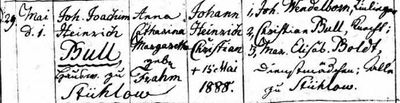 29. Mai Joh. Joachim Anna Johann 1, Joh. Wendelborn,
d. 1. Heinrich Catharina Heinrich 2, Christian Bull, Knecht;
Bull, Margaretha Christian 3, Mar. Elisab. Boldt,
zu geb. + 15 Mai Dienstmädchen; alle
Stühlow Frahm 1888. zu Stühlow.